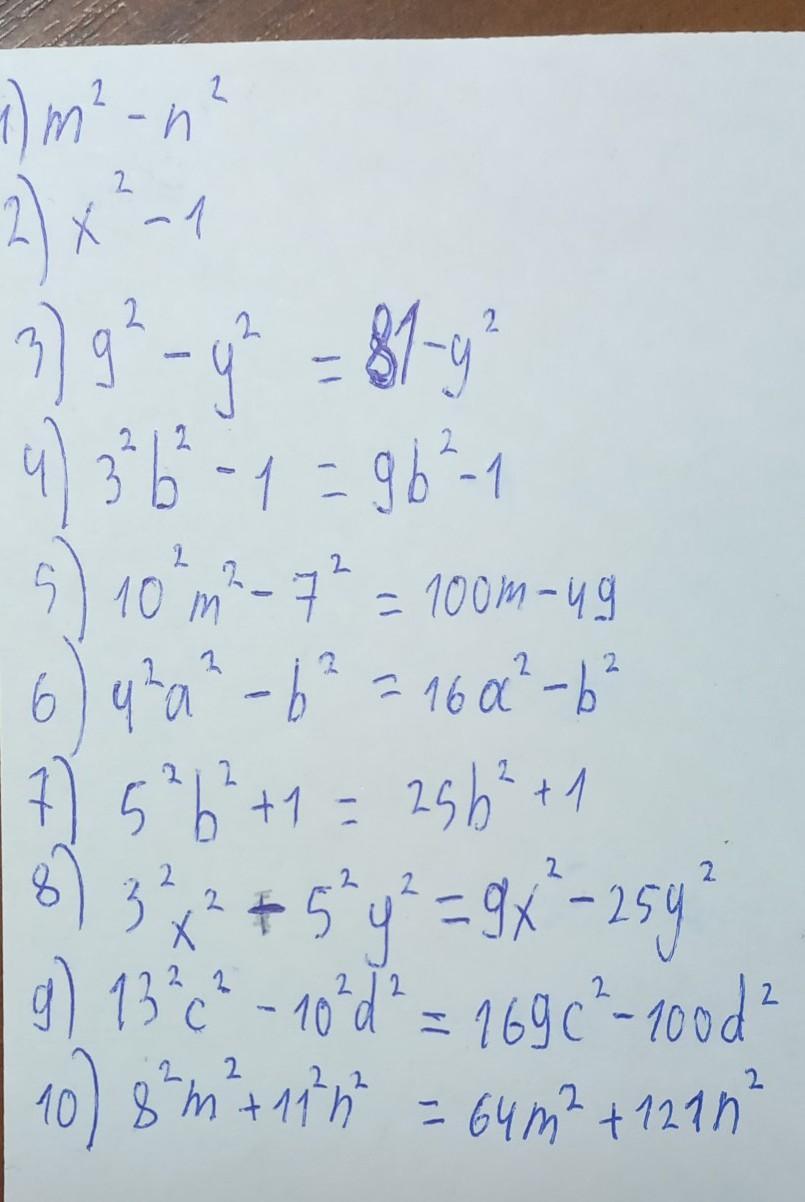 1) m² - n²
2) x² - 1
3) 9² - y² = 81 - y²
4) 3²b² - 1 = 9b² - 1
5) 10²m² - 7² = 100m - 49
6) 4²a² - b² = 16a² - b²
7) 5²b² + 1 = 25b² + 1
8) 3²x² - 5²y² = 9x² - 25y²
9) 13²c² - 10²d² = 169c² - 100d²
10) 8²m² + 11²n² = 64m² + 121n²